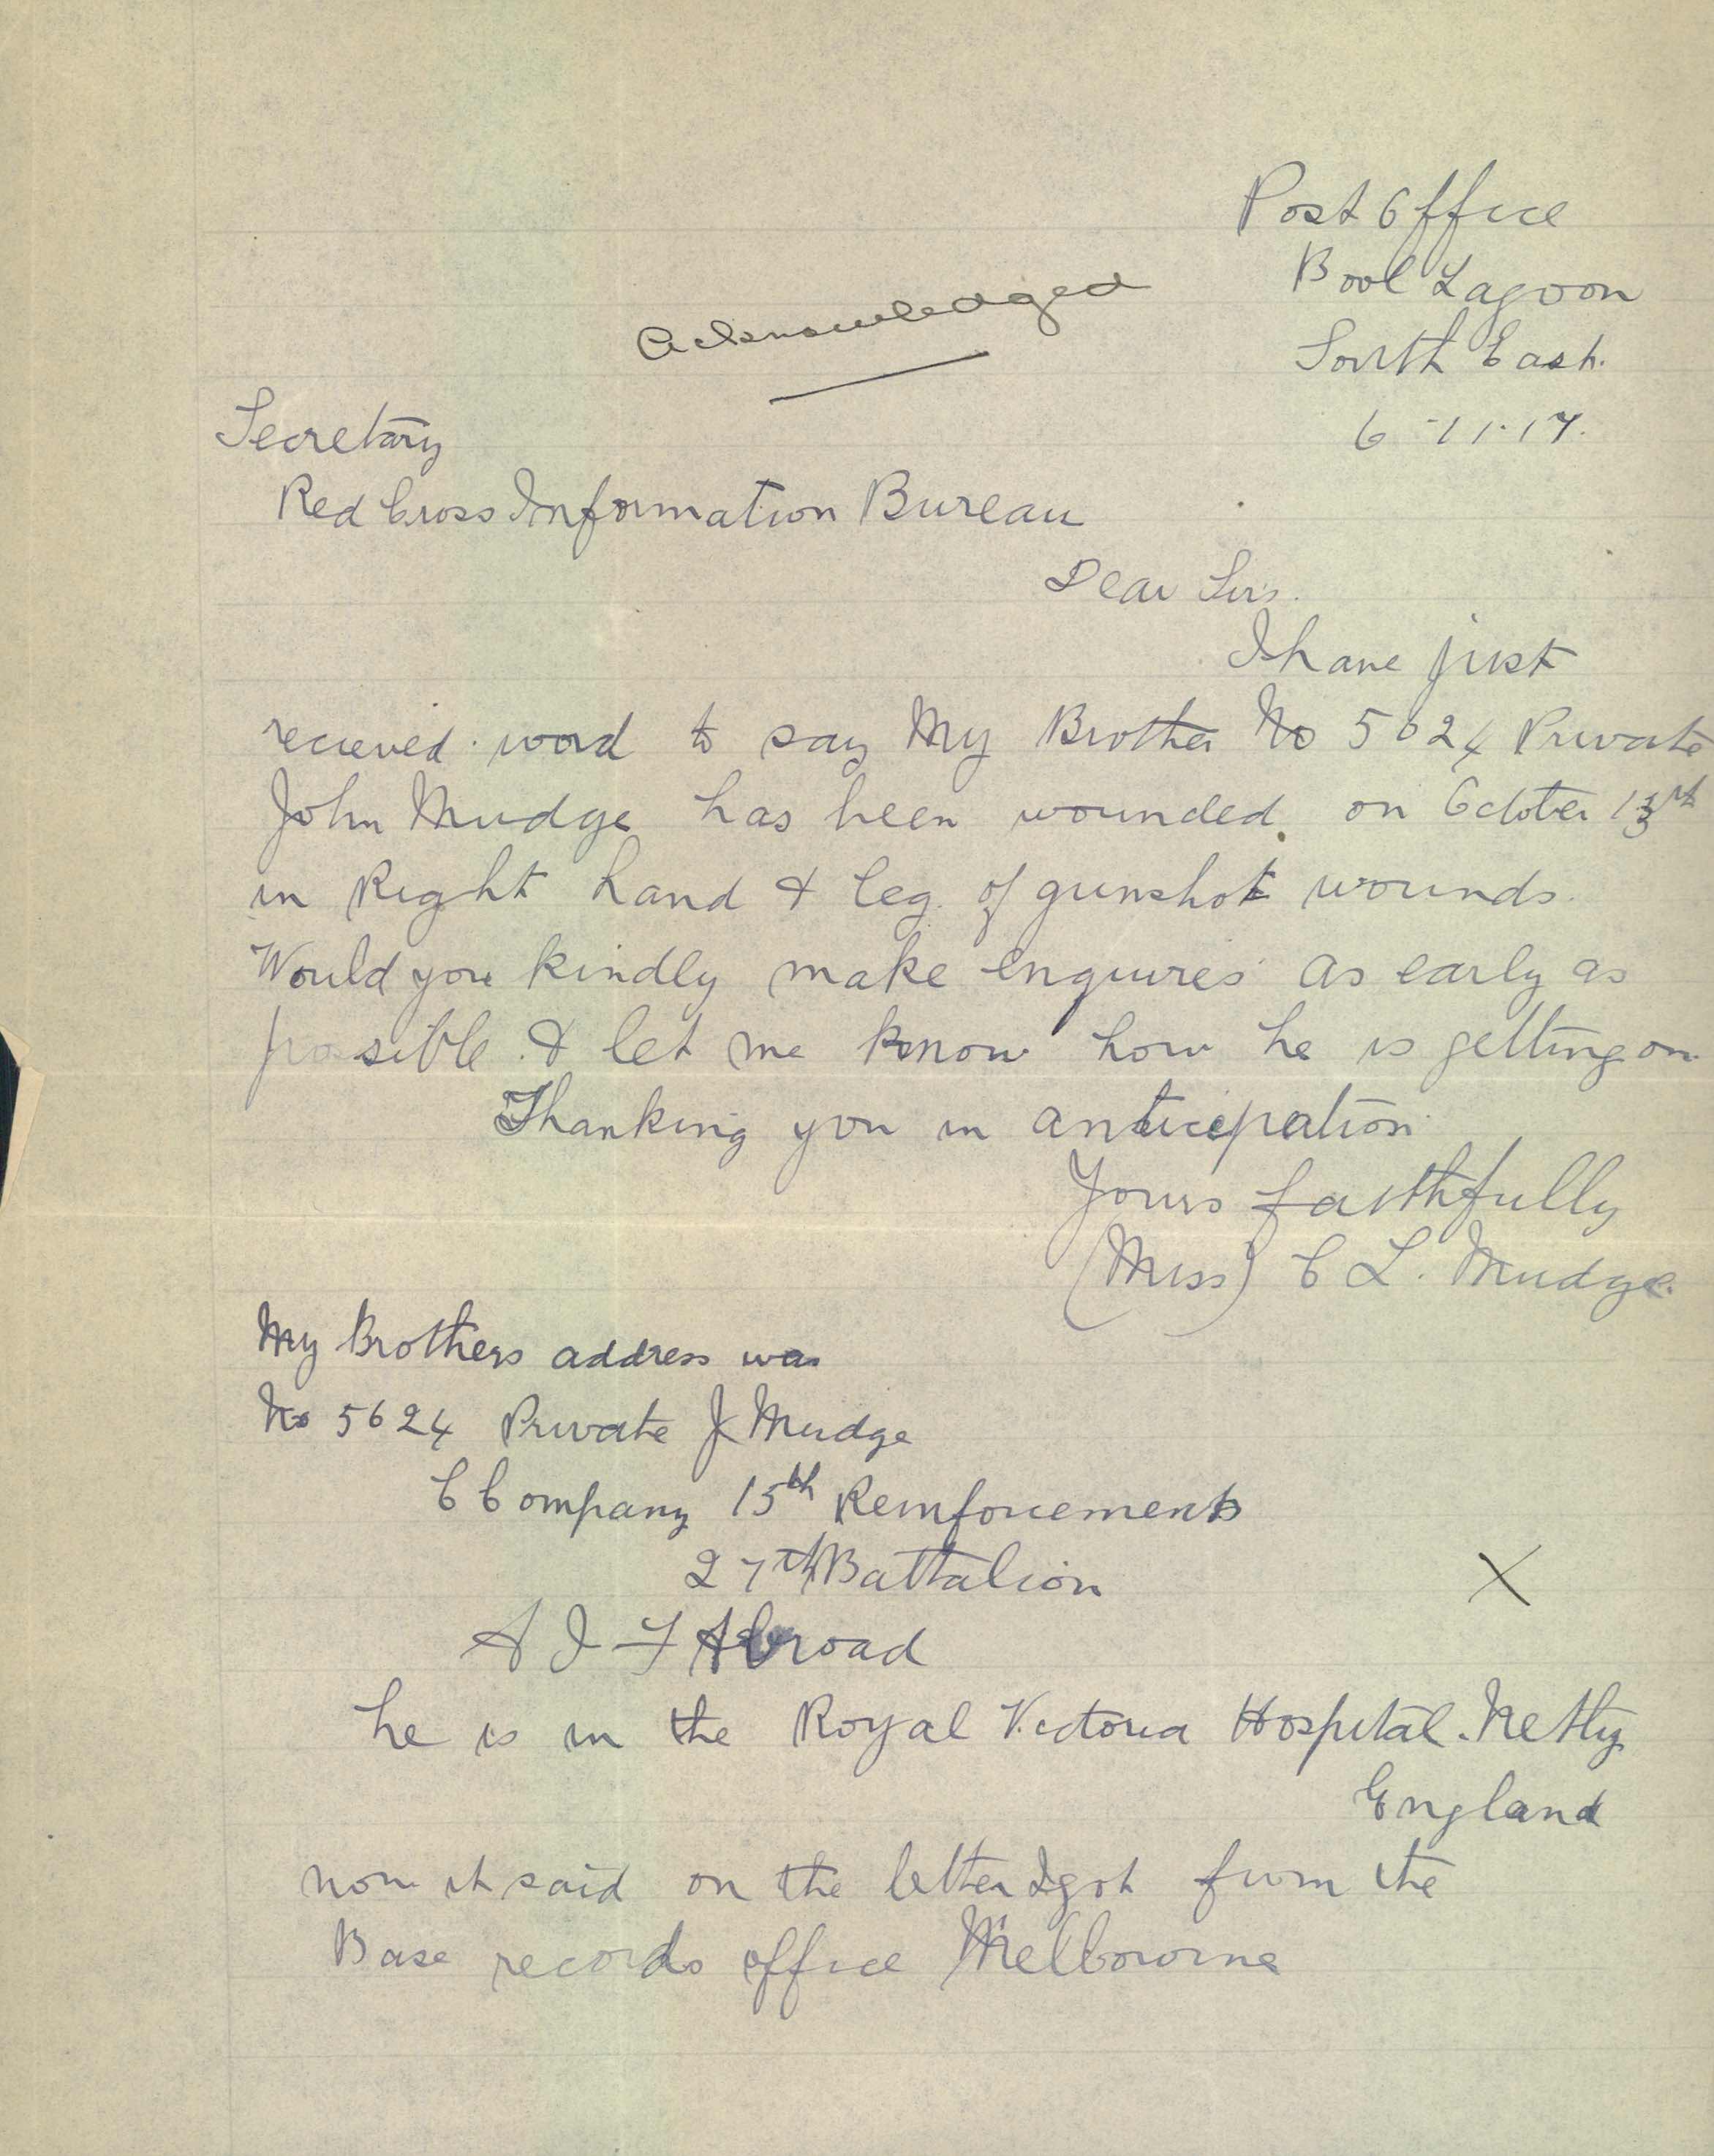 Post Office
Bool Lagoon
South East.
6-11-17.
Acknowledged
Secretary
Red Cross Information Bureau
Dear Sirs.
I have just
recieved word to say My Brother No 5624 Private
John Mudge has been wounded. on October 13th
in Right hand & leg. of gunshot wounds.
Would you kindly make enquires as early as
possible. & let me know how he is getting on
Thanking you in anticipation
Yours faithfully
(Miss) C L. Mudge.
My Brothers address was
No 5624 Private J Mudge
C Company 15th Reinforcements
27th Battalion
X
A I F Abroad
he is in the Royal Victoria Hospital. Netly
England
now it said on the letter I got from the
Base records office Melbourne